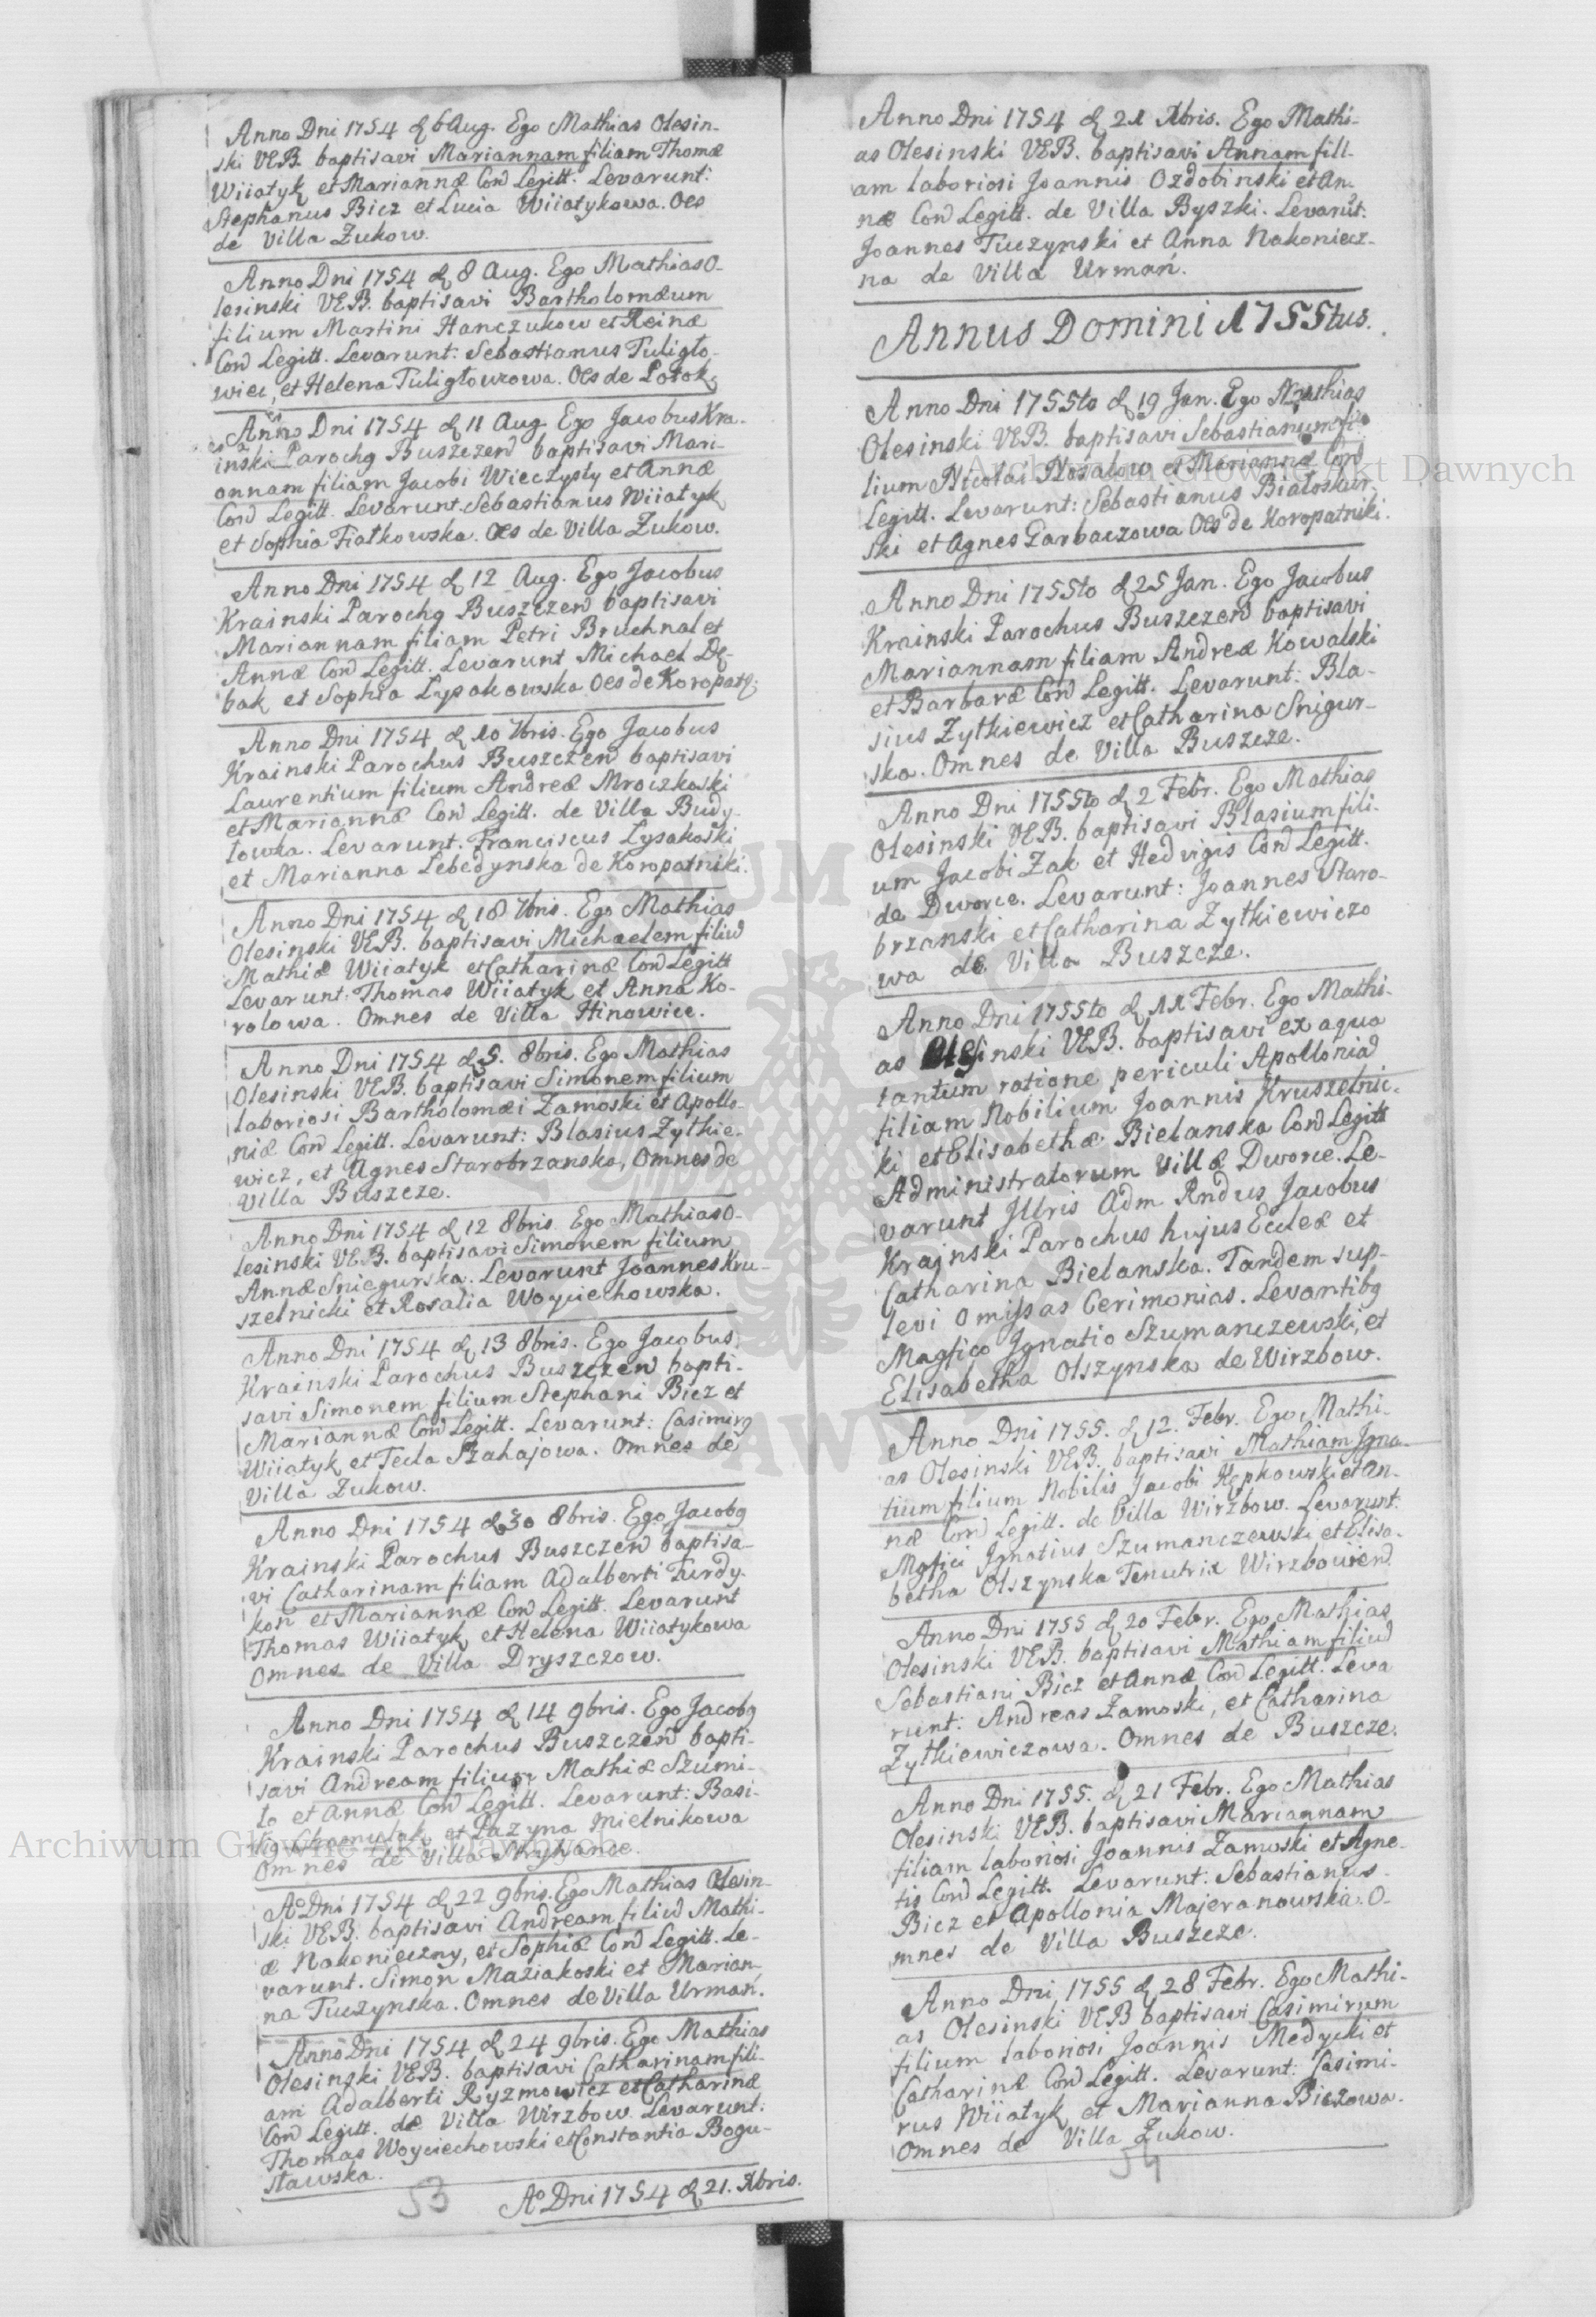 Anno Dni 1754 d 6 Aug. Ego Mathias Olesin-
ski VEB. baptisavi Mariannam filiam Thomæ
Wiiatyk et Mariannæ Con Legitt. Levarunt:
Stephanus Bicz et Lucia Wiiatykowa. Oes
de Villa Zukow.
Anno Dni 1754 d 8 Aug. Ego Mathias O-
lesinski VEB. baptisavi Bartholomæum
filium Martini Hanczukow et Reinæ
Con Legitt. Levarunt: Sebastianus Tuligło-
wiec, et Helena Tuligłowzowa. Oes de Potok
Anno Dni 1754 d 11 Aug. Ego Jacobus Kra-
inski Parochq Buszczen baptisavi Mari-
annam filiam Jacobi Wieczysty et Annæ
Con Legitt. Levarunt Sebastianus Wiiatyk
et Sophia Fiałkowska. Oes de Villa Zukow.
Anno Dni 1754 d 12 Aug. Ego Jacobus
Krainski Parochq Buszczen baptisavi
Mariannam filiam Petri Bruchnal et
Annæ Con Legitt. Levarunt Michael Dę-
bak et Sophia Lysakowska. Oes de Koropatq
Anno Dni 1754 d 10 7bris. Ego Jacobus
Krainski Parochus Buszczen baptisavi
Laurentium filium Andreæ Mroczkoski
et Mariannæ Con Legitt. de Villa Budy-
łowka. Levarunt. Franciscus Lysakoski
et Marianna Lebedynska de Koropatniki.
Anno Dni 1754 d 18 7bris. Ego Mathias
Olesinski VEB. baptisavi Michaelem filiu
Mathiæ Wiiatyk et Catharinæ Con Legitt
Levarunt: Thomas Wiiatyk et Anna Ko-
rolowa. Omnes de Villa Hinowice.
Anno Dni 1754 d 5. 8bris. Ego Mathias
Olesinski VEB. baptisavi Simonem filium
laboriosi Bartholomæi Zamoski et Apollo-
niæ Con Legitt. Levarunt: Blasius Zytkie-
wicz, et Agnes Starobrzanska, Omnes de
Villa Buszcze.
Anno Dni 1754 d 12 8bris. Ego Mathias O-
lesinski VEB. baptisavi Simonem filium
Annæ Sniegurska. Levarunt Joannes Kru-
szelnicki et Rosalia Woyciechowska.
Anno Dni 1754 d 13 8bris. Ego Jacobus
Krainski Parochus Buszczen bapti-
savi Simonem filium Stephani Bicz et
Mariannæ Con Legitt. Levarunt: Casimirq
Wiiatyk et Tecla Szahajowa. Omnes de
Villa Zukow.
Anno Dni 1754 d 30 8bris. Ego Jacobq
Krainski Parochus Buszczen baptisa-
vi Catharinam filiam Adalberti Turdy-
kon et Mariannæ Con Legitt. Levarunt
Thomas Wiiatyk et Helena Wiiatykowa
Omnes de Villa Dryszczow.
Anno Dni 1754 d 14 9bris. Ego Jacobq
Krainski Parochus Buszczen bapti-
savi Andream filium Mathiæ Szumi-
ło et Annæ Con Legitt. Levarunt: Basi-
liq Chomulak et Pazyna Mielnikowa
Omnes de Villa
Ao Dni 1754 d 22 9bris. Ego Mathias Olesin-
ski VEB. baptisavi Andream filiu Mathi-
æ Nakonieczny, et Sophiæ Con Legitt. Le-
varunt. Simon Maziakoski et Marian-
na Tuczynska. Omnes de Villa Urmań.
Anno Dni 1754 d 24 9bris. Ego Mathias
Olesinski VEB. baptisavi Catharinam fili-
am Adalberti Ryzmowicz et Catharinæ
Con Legitt. de Villa Wirzbow. Levarunt:
Thomas Woyciechowski et Constantia Bogu-
sławska.
53
Ao Dni 1754 d 21. Xbris.
Anno Dni 1754 d 21 Xbris. Ego Mathi-
as Olesinski VEB. baptisavi Annam fili-
am laboriosi Joannis Ozdobinski et An-
næ Con Legitt. de Villa Byszki. Levarut:
Joannes Tuczynski et Anna Nakoniecz-
na de Villa Urmań.
Annus Domini 1755tus.
Anno Dni 1755to d 19 Jan. Ego Mathias
Olesinski VEB. baptisavi Sebastianum fi-
lium Nicolai Nosalow et Mariannæ Con
Legitt. Levarunt: Sebastianus Białoskur-
ski et Agnes Garbaczowa Oes de Koropatniki.
Anno Dni 1755to d 25 Jan. Ego Jacobus
Krainski Parochus Buszczen baptisavi
Mariannam filiam Andreæ Kowalski
et Barbaræ Con Legitt. Levarunt: Bla-
sius Zytkiewicz et Catharina Snigur-
ska. Omnes de Villa Buszcze.
Anno Dni 1755to d 2 Febr. Ego Mathias
Olesinski VEB. baptisavi Blasium fili-
um Jacobi Zak et Hedvigis Con Legitt.
de Dworce. Levarunt: Joannes Staro-
brzanski et Catharina Zytkiewiczo
wa de Villa Buszcze.
Anno Dni 1755to d 11 Febr. Ego Mathi-
as Olesinski VEB. baptisavi ex aqua
tantum ratione periculi Apolloniam
filiam Nobilium Joannis Kruszelnic-
ki et Elisabethæ Bielanska Con Legitt
Administratorum Villæ Dworce. Le-
varunt Illris Adm Rndus Jacobus
Krajnski Parochus hujus Eccleæ et
Catharina Bielanska. Tandem sup-
levi omissas Cerimonias. Levantibq
Magfico Ignatio Szumanczewski, et
Elisabetha Olszynska de Wirzbow.
Anno Dni 1755. d 12. Febr. Ego Mathi-
as Olesinski VEB. baptisavi Mathiam Igna-
tium filium Nobilis Jacobi Kępkowski et An-
næ Con Legitt. de Villa Wirzbow. Levarunt:
Mgfici Ignatius Szumanczewski et Elisa-
betha Olszynska Tenutrix Wirzbovien
Anno Dni 1755 d 20 Febr. Ego Mathias
Olesinski VEB. baptisavi Mathiam filiu
Sebastiani Bicz et Annæ Con Legitt. Leva
runt: Andreas Zamoski, et Catharina
Zytkiewiczowa. Omnes de Buszcze.
Anno Dni 1755. d 21 Febr. Ego Mathias
Olesinski VEB. baptisavi Mariannam
filiam laboriosi Joannis Zamoski et Agne-
tis Con Legitt. Levarunt: Sebastianus
Bicz et Apollonia Majeranowska. O-
mnes de Villa Buszcze.
Anno Dni 1755 d 28 Febr. Ego Mathi-
as Olesinski VEB baptisavi Casimirum
filium laboriosi Joannis Medycki et
Catharinæ Con Legitt. Levarunt: Casimi-
rus Wiiatyk et Marianna Biczowa.
Omnes de Villa Zukow.
54
Archiwum Główne Akt Dawnych
Archiwum Główne Akt Dawnych